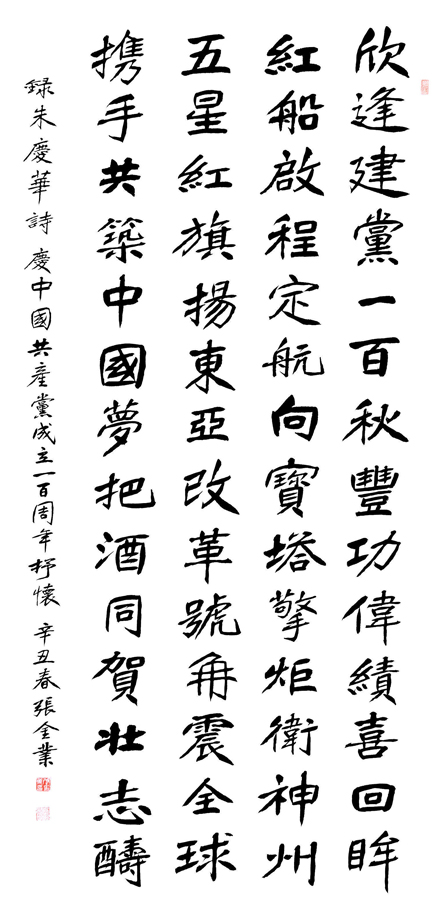 欣逢建黨一百秋豐功偉績喜回眸
紅船啟程定航向寶塔擎炬衛神州
五星紅旗揚東亞改革號角震全球
携手共築中國夢把酒同賀壯志酬
録朱慶華詩慶中國共產黨成立一百周年抒懷辛丑春張全業